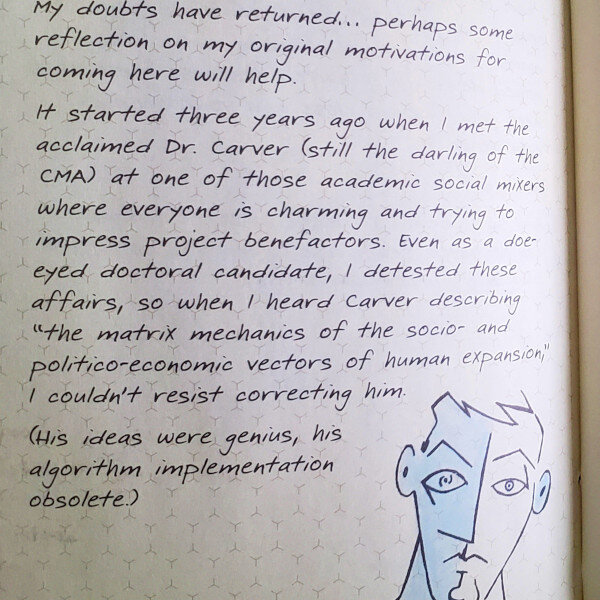 My doubts have returned... perhaps some
reflection on my original motivations for
coming here will help.
It started three years ago when I met the
acclaimed Dr. Carver (still the darling of the
CMA) at one of those academic social mixers
where everyone is charming and trying to
impress project benefactors. Even as a doe-
eyed doctoral candidate, I detested these
affairs, so when I heard Carver describing
"the matrix mechanics of the socio- and
politico-economic vectors of human expansion,"
I couldn't resist correcting him.
(His ideas were genius, his
algorithm implementation
obsolete.)